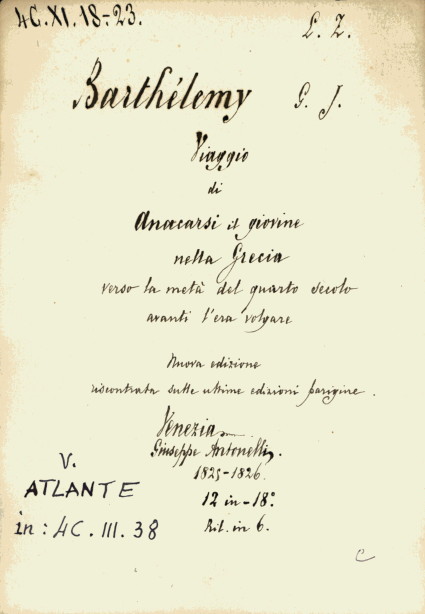 4C.XI.18-23.
L. Z.
Barthélemy G. J.
Viaggio
di
Anacarsi il giovine
nella Grecia
verso la metà del quarto secolo
avanti l'era volgare
Nuova edizione
riscontrata sulle ultime edizioni parigine.
Venezia
Giuseppe Antonelli.
1825-1826
12 in-18°
Ril. in 6.
V.
ATLANTE
in: 4C.III.38
C